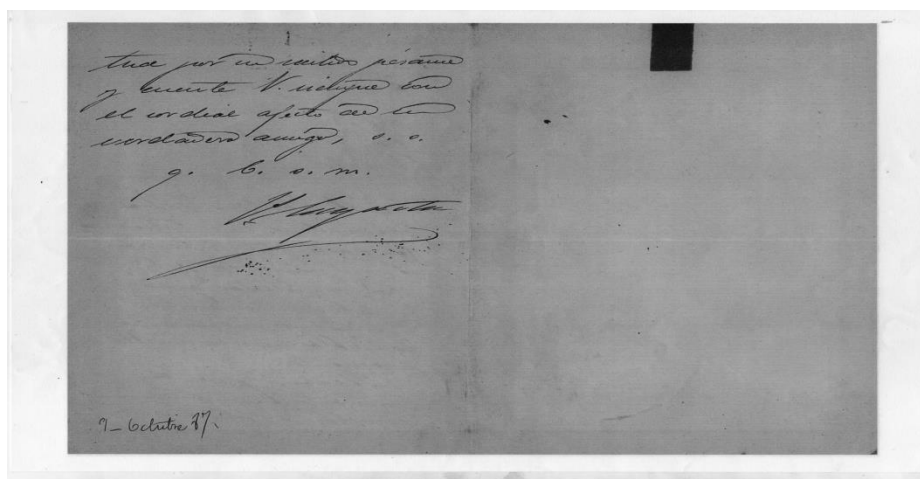 tud por su sentido pésame
y cuente V. siempre con
el cordial afecto de un
verdadero amigo, s. s.
q. b. s. m.
2_ Octubre 87.